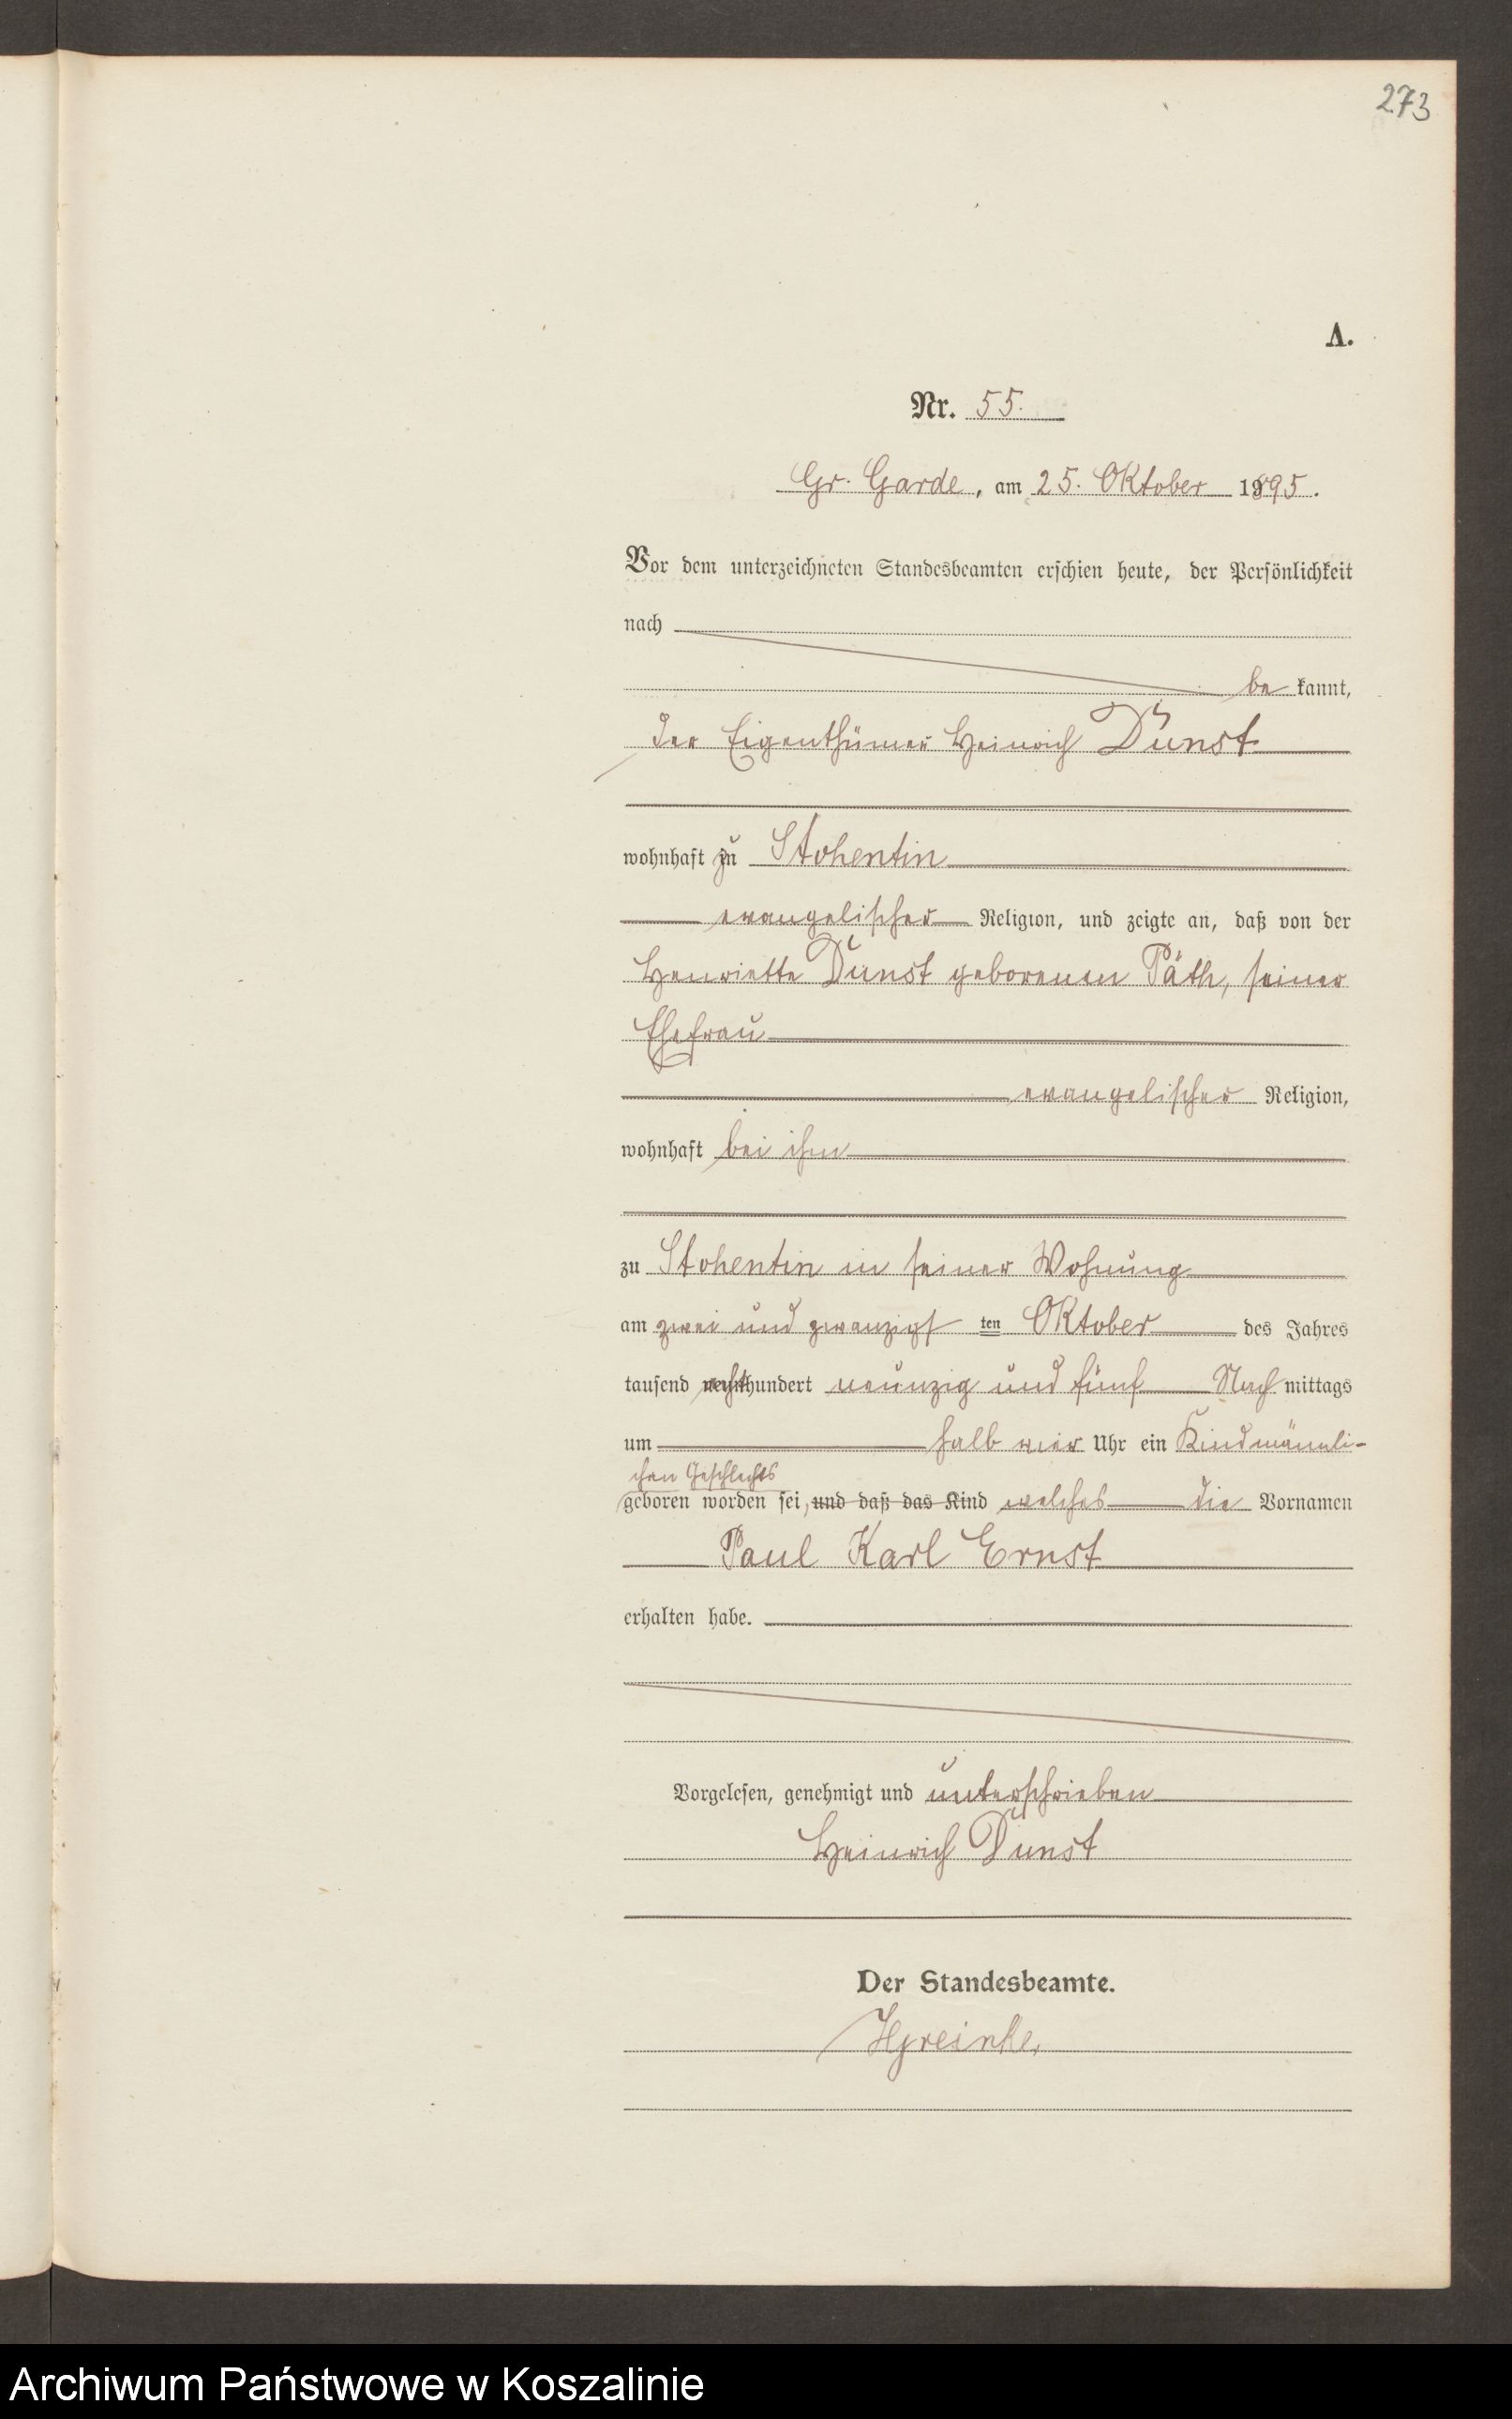 273
A.
Nr. 55.
Gr. Garde, am 25. Oktober 1895.
Vor dem unterzeichneten Standesbeamten erschien heute, der Persönlichkeit
nach
be kannt,
der Eigenthümer Heinrich Dunst
wohnhaft zu Stohentin
evangelischer Religion, und zeigte an, daß von der
Henriette Dunst geborenen Päth, seiner
Ehefrau
evangelischer Religion,
wohnhaft bei ihm
zu Stohentin in seiner Wohnung
am zwei und zwanzigsten Oktober des Jahres
tausend achthundert neunzig und fünf Nach mittags
um halb vier Uhr ein Kind männli-
chen Geschlechts
geboren worden sei, und daß das Kind welches die Vornamen
Paul Karl Ernst
erhalten habe.
Vorgelesen, genehmigt und unterschrieben
Heinrich Dunst
Der Standesbeamte.
Archiwum Państwowe w Koszalinie